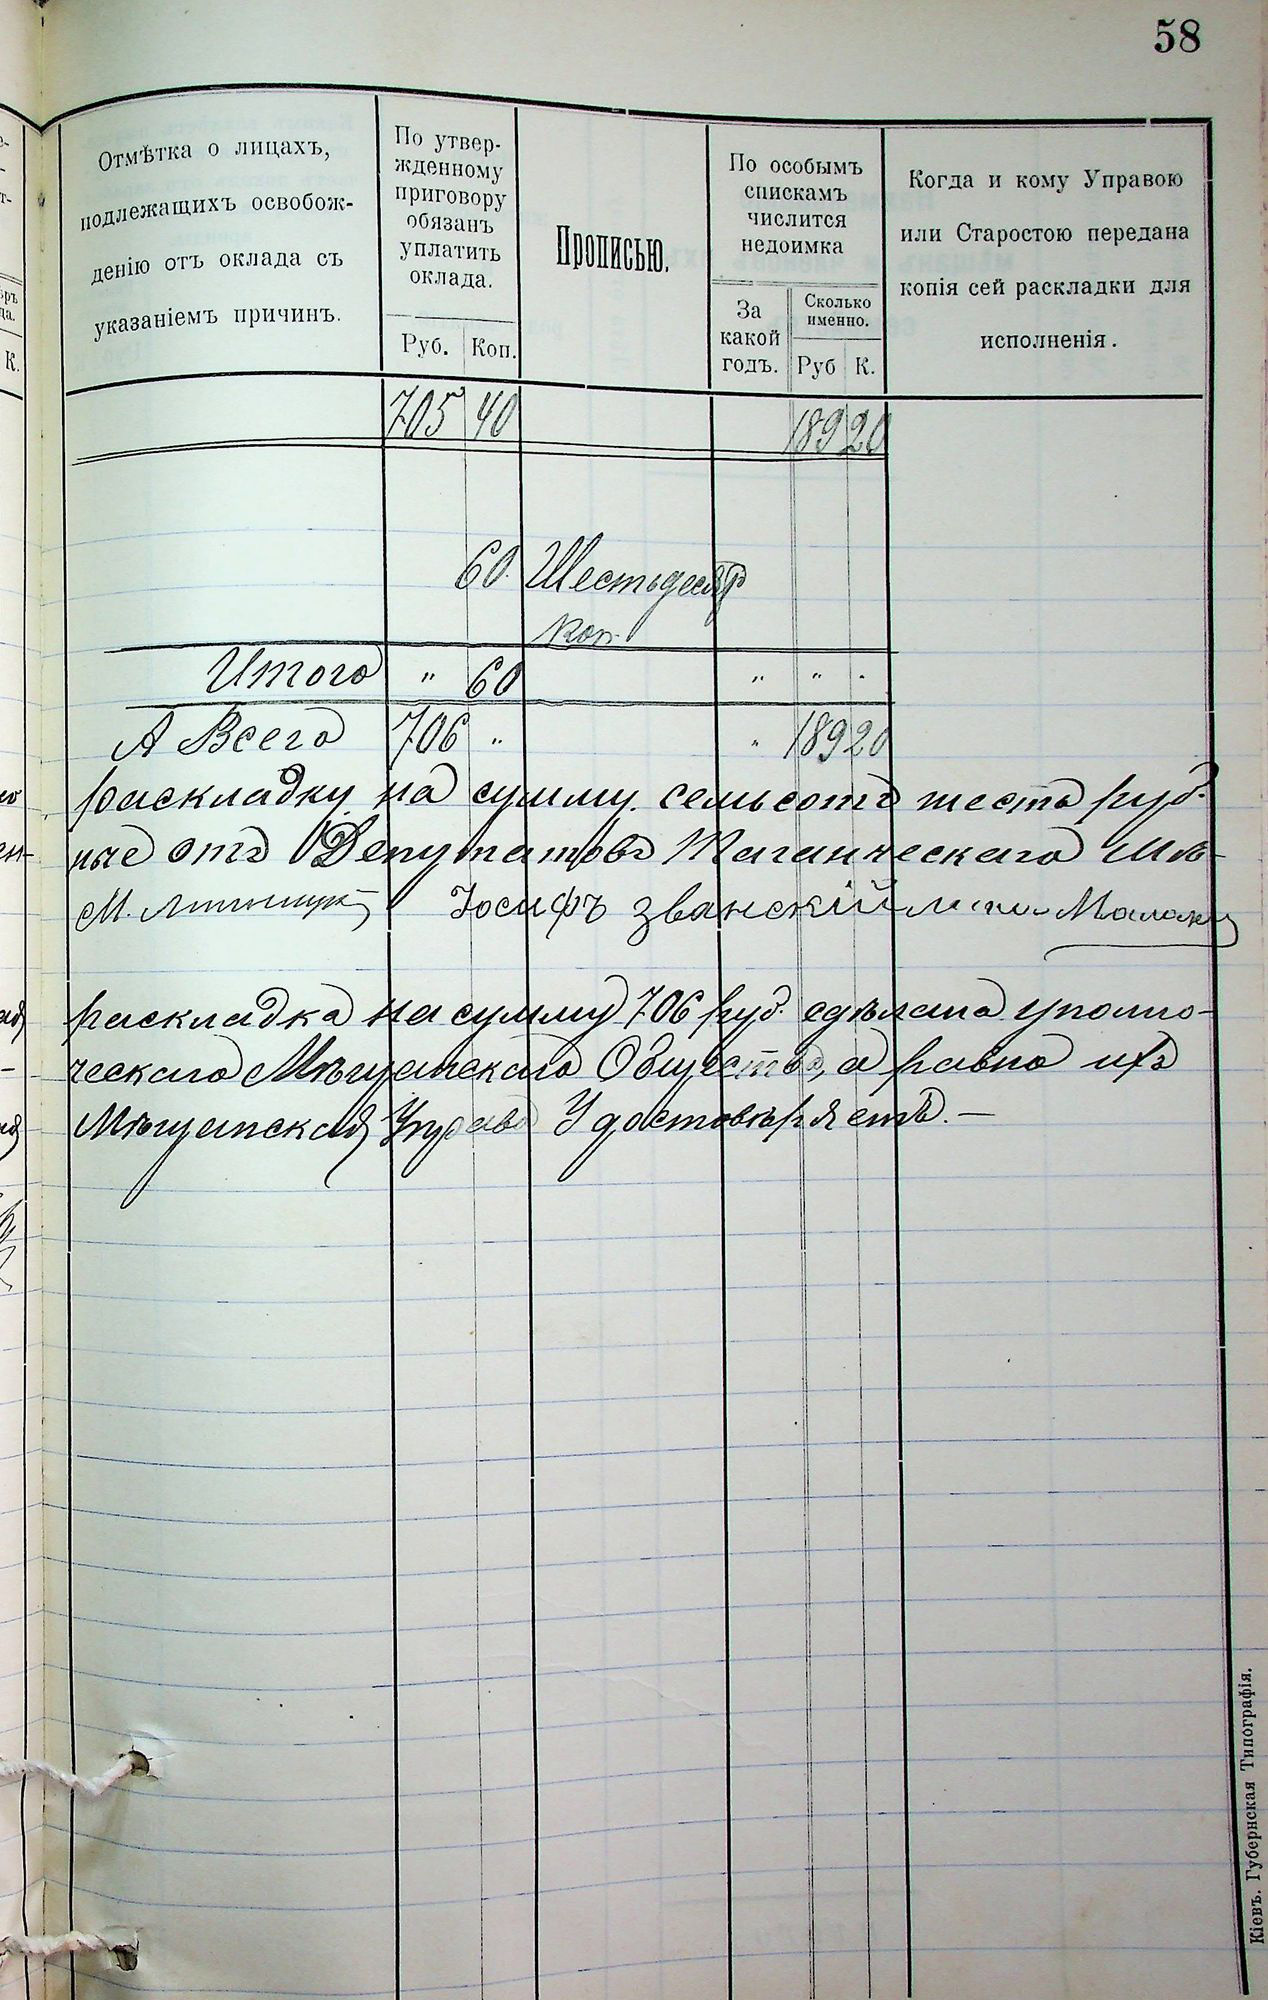 58
Отмѣтка о лицахъ,
подлежащихъ освобож-
денію отъ оклада съ
указаніемъ причинъ.
По утвер-
жденному
приговору
обязанъ
уплатить
оклада.
Руб. Коп.
Прописью.
По особымъ
спискамъ
числится
недоимка
За
какой
годъ.
Сколько
именно.
Руб К.
Когда и кому Управою
или Старостою передана
копія сей раскладки для
исполненія.
К.
705 40 189 20
60 Шестьдесятъ
коп.
Итого " 60 " " "
А Всего 706 " " 189 20
раскладку на сумму семьсотъ шесть руб.
ные отъ Депутатовъ Таганческаго Мѣ-
М. Іосифъ званскій
раскладка на сумму 706 руб. сдѣлана уполно-
ческаго Мѣщанскаго Общества, а равно ихъ
Мѣщанская Управа Удостовѣряетъ. —
Кіевъ. Губернская Типографія.